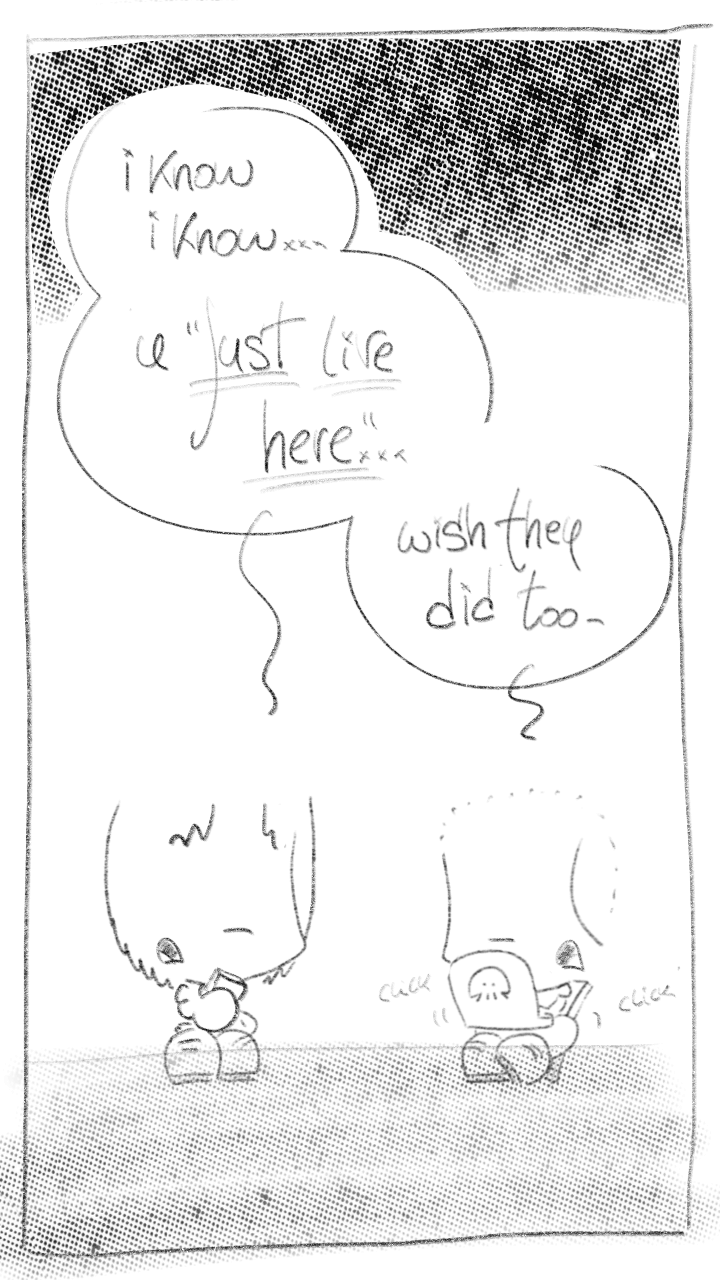 i know
i know...
u "just live
here"...
wish they
did too-
click
click